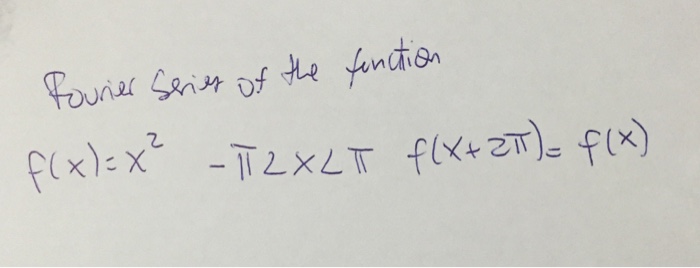 Fourier Series of the function
f(x)=x² -π<x<π f(x+2π)= f(x)